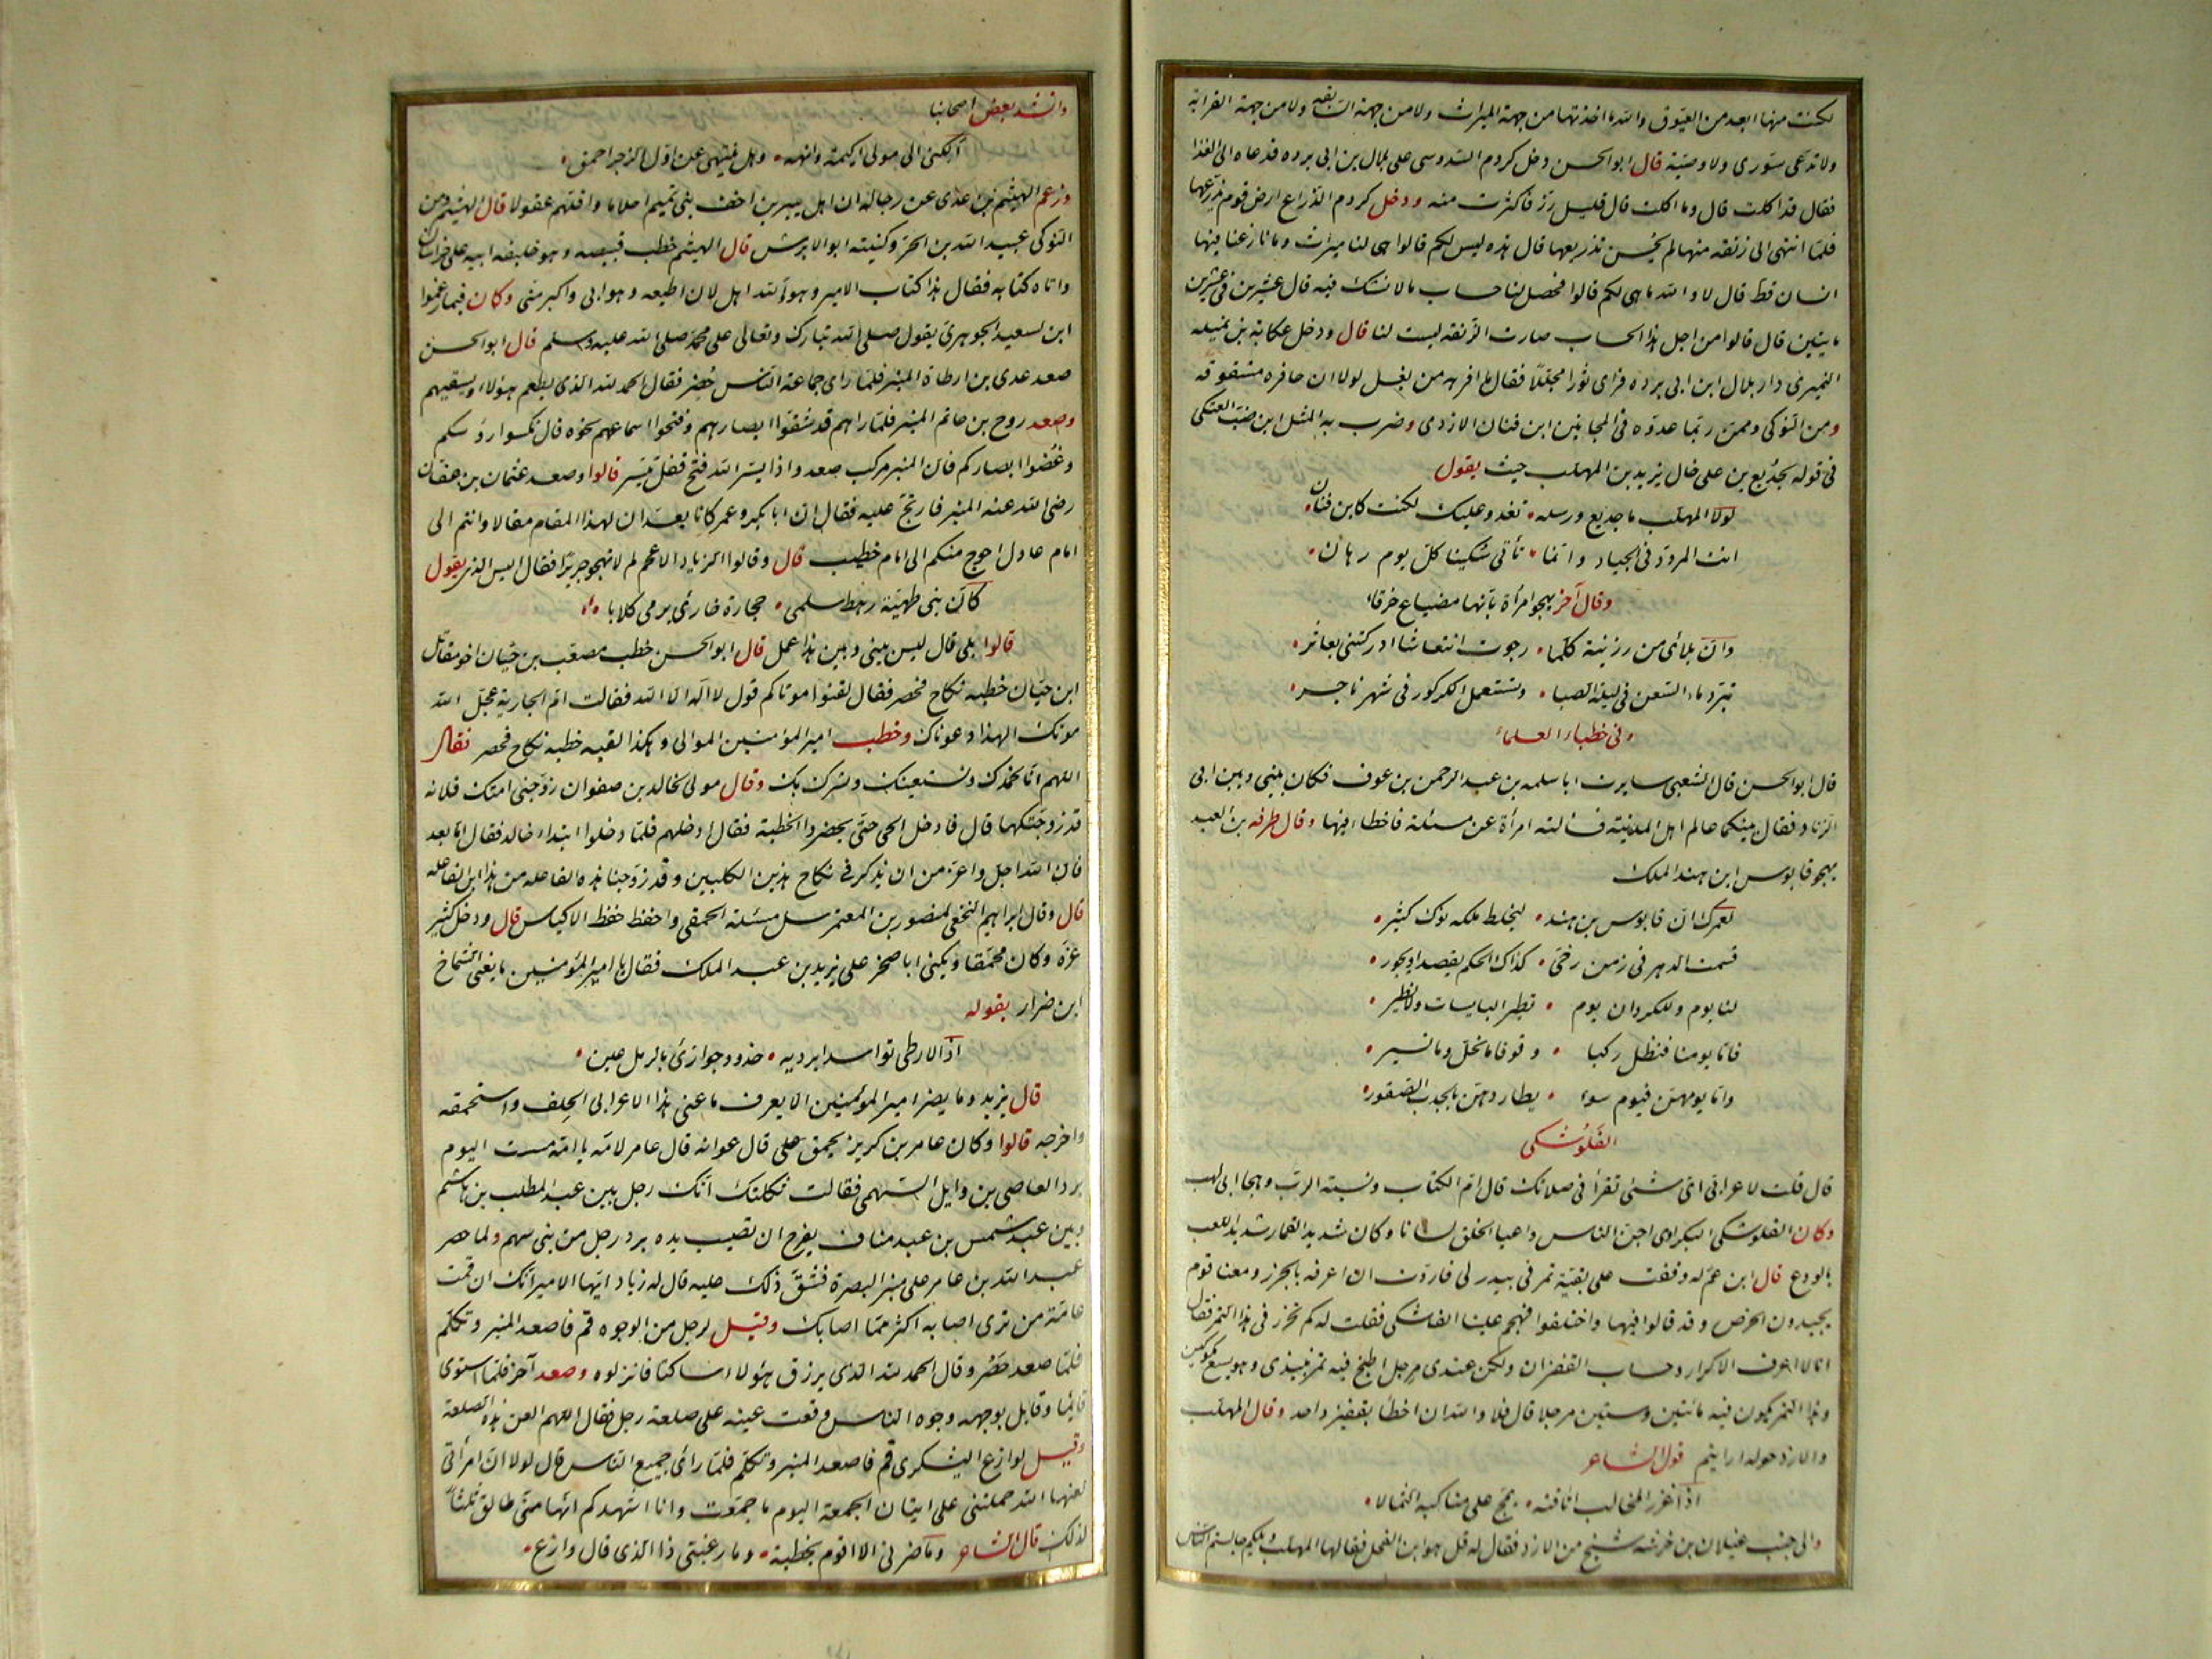 لكنت منها ابعد من العيوق والله ما اخذتها من جهة الميراث ولا من جهة السابقه ولا من جهة القرابة
ولا تدعى شورى ولا وصية قال ابو الحسن دخل كردم السدوسى على بلال بن ابى برده فدعاه الى الغذا
فقال قد اكلت قال وما اكلت قال قليل رز فاكثرت منه ودخل كردم الذراع ارض قوم يذرعها
فلما انتهى الى زنقه منها لم يحسن تذريعها قال هذه ليس لكم قالوا هى لنا ميراث وما نازعنا فيها
انسان قط قال لا والله ما هى لكم قالوا فحصل لنا حساب ما لا نشك فيه قال عشرين فى عشرين
مايتين قال قالوا من اجل هذا الحساب صارت الزنقه ليست لنا قال ودخل عكابة بن نميله
النميرى دار بلال ابن ابى برده فراى ثورا مجللا فقال ما افرهه من بغل لولا ان حافره مشقوقه
ومن النوكى وممن ربما عدوه فى المجانين ابن فنان الازدى وضرب به المثل ابن ضب العتكى
فى قوله لجديع بن على خال يزيد بن المهلب حيث يقول
لولا المهلب ما جديع ورسله • تغدو عليك لكنت كابن فنان •
انت المردد فى الجياد وانما • تأتى سكيتا كل يوم رهان •
وقال آخر يهجو امرأة بأنها مضياع خرقاء
وان بلائى من رزينة كلما • رجوت انتعاشا ادركتنى بعاثر •
تبرد ماء السعن فى ليلة الصبا • وتستعمل الكركور فى شهر ناجر •
وفى خطباء العلماء
قال ابو الحسن قال الشعبى سايرت ابا سلمه بن عبد الرحمن بن عوف فكان بينى وبين ابى
الزناد فقال بينكما عالم اهل المدينة فسألته امرأة عن مسئلة فاخطاء فيها وقال طرفه بن العبد
يهجو قابوس ابن هند الملك
لعمرك ان قابوس بن هند • ليخلط ملكه نوك كثير •
قسمت الدهر فى زمن رخى • كذاك الحكم يقصد او يجور •
لنا يوم وللكروان يوم • تطير البايسات ولا نطير •
فاما يومنا فنظل ركبا • وقوفا ما نحل وما نسير •
واما يومهن فيوم سوء • يطاردهن بالحدب الصقور •
الفلوشكى
قال قلت لاعرابى اى شىء تقرأ فى صلاتك قال ام الكتاب ونسبة الرب وهجا ابى لهب
وكان الفلوشكى البكراوى اجن الناس واعيا الخلق لسانا وكان شديد القمار شديد اللعب
بالودع قال ابن عم له وقفت على بقية تمر فى بيدر لى فاردت ان اعرفه بالحرز ومعنا قوم
يجيدون الخرص وقد قالوا فيها واختلفوا فهجم علينا الفلشكى فقلت له كم تحزر فى هذا التمر فقال
انا لا اعرف الاكرار وحساب القفزان ولكن عندى مرجل اطبخ فيه تمر نبيذى وهو يسع مكوكين
وهذا التمر يكون فيه مائتين وستين مرجلا قال فلا والله ان اخطأ بقفيز واحد وقال المهلب
والازد حوله ارايتم قول الشاعر
اذا غزر المخالب اتاقته • يمج على مناكبه الثمالا •
والى جنب غيلان بن خرشه شيخ من الازد فقال له قل هو ابن الفحل فقالها المهلب ويلكم جالستم الناس
وانشد بعض اصحابنا
ألكنى الى مولى اكيمة وانهه • وهل ينتهى عن اول الزجر احمق •
وزعم الهيثم بن عدى عن رجاله ان اهل يبرين اخف بنى تميم احلاما واقلهم عقولا قال الهيثم ومن
النوكى عبيد الله بن الحر وكنيته ابو الابرش قال الهيثم خطب قبيصه وهو خليفه ابيه على خراسان
واتاه كتابه فقال هذا كتاب الامير وهو لله اهل لان اطيعه وهو ابى واكبر منى وكان فيما زعموا
ابن لسعيد الجوهرى يقول صلى الله تبارك وتعالى على محمد صلى الله عليه وسلم قال ابو الحسن
صعد عدى بن ارطاة المنبر فلما راى جماعة الناس حصر فقال الحمد لله الذى يطعم هؤلاء ويسقيهم
وصعد روح بن حاتم المنبر فلما راهم قد شفنوا ابصارهم وفتحوا اسماعهم نحوه قال نكسوا رؤسكم
وغضوا ابصاركم فان المنبر مركب صعد واذا يسر الله فتح قفل تيسر قالوا وصعد عثمان بن عفان
رضى الله عنه المنبر فارتج عليه فقال ان ابا بكر وعمر كانا يعدان لهذا المقام مقالا وانتم الى
امام عادل احوج منكم الى امام خطيب قال وقالوا الزياد الاعجم لم لا تهجو جريرا فقال اليس الذى يقول
كأن بنى طهية رهط سلمى • حجارة خارئ يرمى كلابا •
قالوا بلى قال ليس بينى وبين هذا عمل قال ابو الحسن خطب مصعب بن حيان اخو مقاتل
ابن حيان خطبه نكاح فحصر فقال لقنوا موتاكم قول لا اله الا الله فقالت ام الجارية عجل الله
موتك الهذا دعوناك وخطب امير المؤمنين الموالى وهكذا لقبه خطبه نكاح فحصر فقال
اللهم انا نحمدك ونستعينك ونشرك بك وقال مولى لخالد بن صفوان زوجنى امتك فلانه
قد زوجتكها قال فادخل الحى حتى يحضروا الخطبة فقال ادخلهم فلما دخلوا ابتداء خالد فقال اما بعد
فان الله اجل واعز من ان يذكر فى نكاح هذين الكلبين وقد زوجنا هذه الفاعله من هذا ابن الفاعله
قال وقال ابراهيم النخعى لمنصور بن المعتمر سل مسئلة الحمقى واحفظ حفظ الاكياس قال ودخل كثير
عزه وكان محمقا ويكنى ابا صخر على يزيد بن عبد الملك فقال يا امير المؤمنين ما يعنى الشماخ
ابن ضرار بقوله
اذا الارطى توسد ابرديه • خدود جوازئ بالرمل عين •
قال يزيد وما يضر امير المؤمنين الا يعرف ما عنى هذا الاعرابى الجلف واستحمقه
واخرجه قالوا وكان عامر بن كريز يحمق على قال عوانه قال عامر لامه يا امه مسست اليوم
برد العاصى بن وايل السهمى فقالت ثكلتك امك رجل بين عبد المطلب بن هاشم
وبين عبد شمس بن عبد مناف يفرح ان تصيب يده برد رجل من بنى سهم ولما حصر
عبد الله بن عامر على منبر البصرة فشق ذلك عليه قال له زياد ايها الامير انك ان قمت
عامة من ترى اصابه اكثر مما اصابك وقيل لرجل من الوجوه قم فاصعد المنبر وتكلم
فلما صعد حصر وقال الحمد لله الذى يرزق هؤلاء ساكتا فانزلوه وصعد آخر فلما استوى
قايما وقابل بوجهه وجوه الناس وقعت عينه على صلعة رجل فقال اللهم العن هذه الصلعة
وقيل لوازع اليشكرى قم فاصعد المنبر وتكلم فلما رأى جميع الناس قال لولا ان امرأتى
لعنها الله حملتنى على اتيان الجمعة اليوم ما جمعت وانا اشهدكم انها منى طالق ثلثا
لذلك قال الشاعر وما ضرنى الا اقوم بخطبة • وما رغبتى ذا الذى قال وازع •